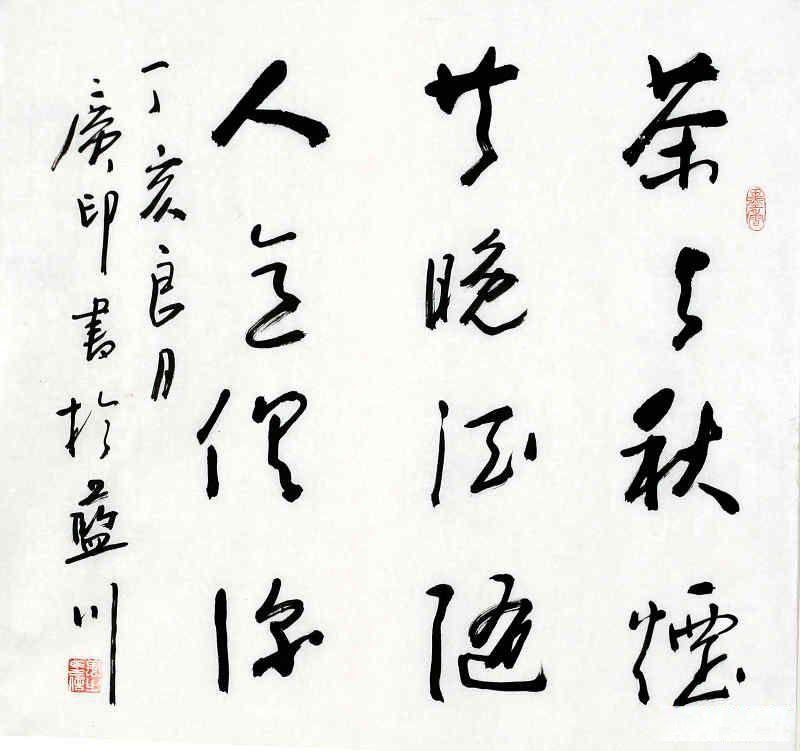 茶与秋煙
共晚酒隨
人意俱深
丁亥良月
廣印書於藍川